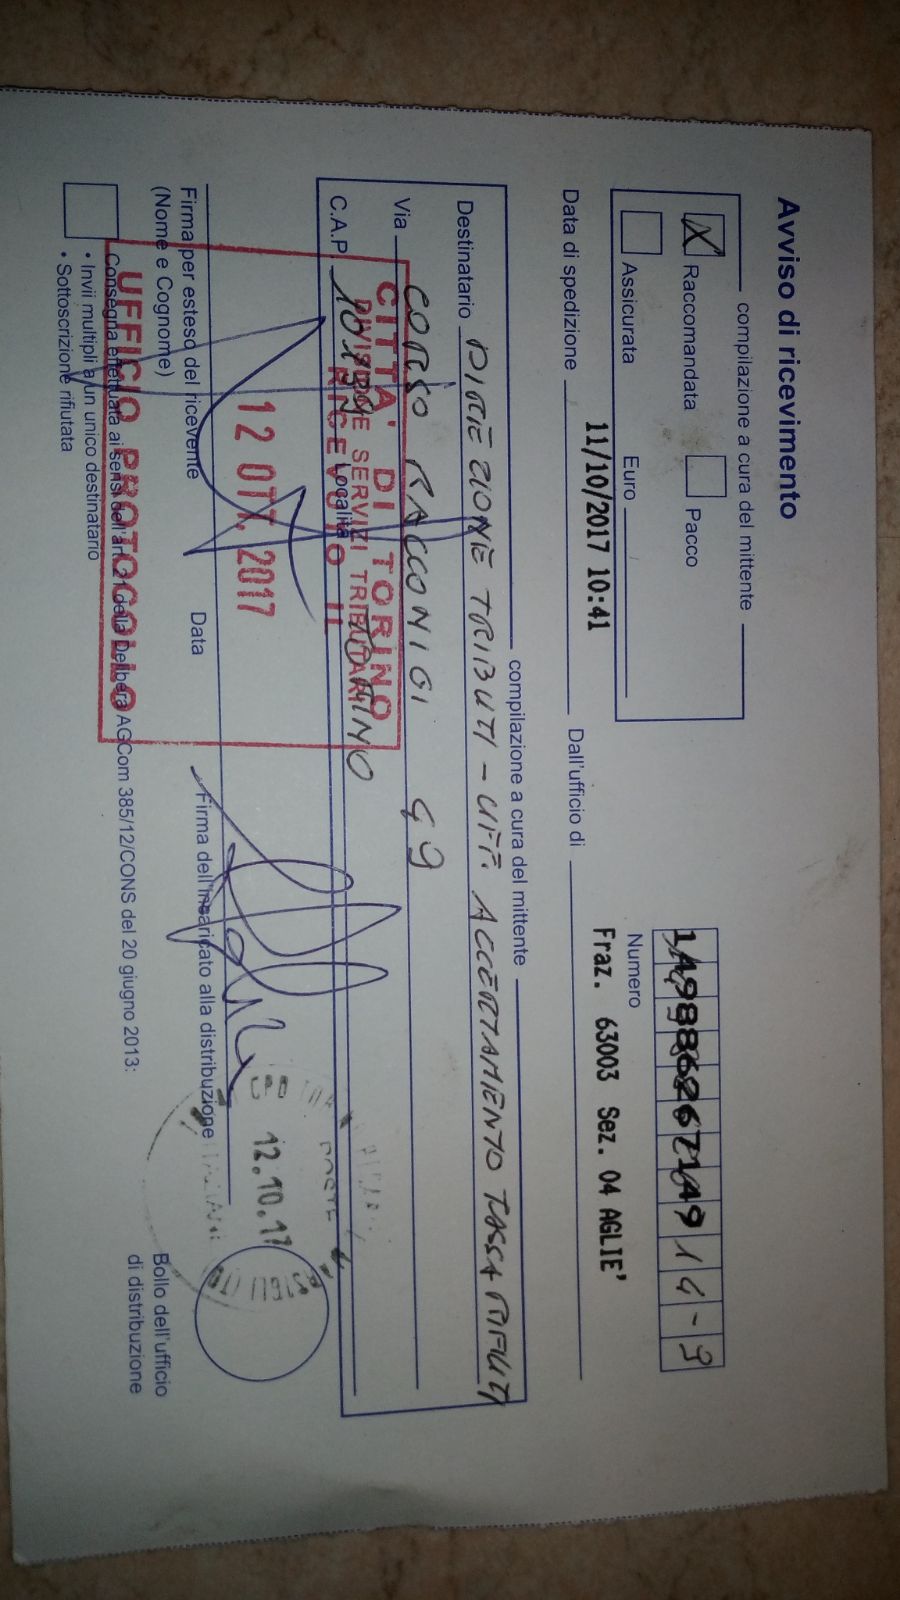 Avviso di ricevimento
compilazione a cura del mittente
X Raccomandata Pacco
Assicurata Euro
Numero
Data di spedizione 11/10/2017 10:41 Dall'ufficio di Fraz. 63003 Sez. 04 AGLIE'
compilazione a cura del mittente
Destinatario DIREZIONE TRIBUTI - UFF. ACCERTAMENTO TASSA RIFIUTI
Via CORSO RACCONIGI 49
C.A.P. Località TORINO
CITTA' DI TORINO
DIVISIONE SERVIZI TRIBUTARI
RICEVUTO IL
12 OTT. 2017
UFFICIO PROTOCOLLO
Firma per esteso del ricevente
(Nome e Cognome)
Data
Firma dell'incaricato alla distribuzione
12.10.17
Bollo dell'ufficio
di distribuzione
Consegna effettuata ai sensi dell'art. 21 della Delibera AGCom 385/12/CONS del 20 giugno 2013:
• Invii multipli a un unico destinatario
• Sottoscrizione rifiutata